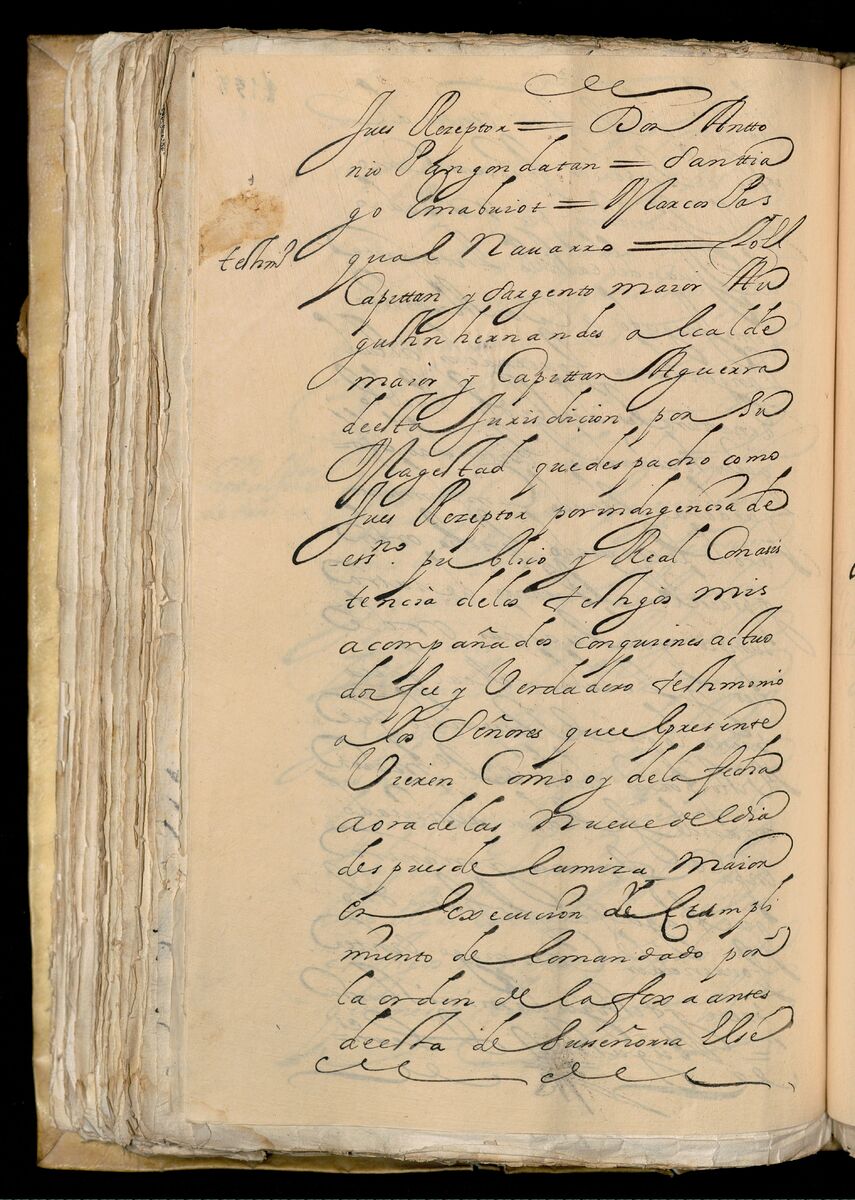 Jues Rezeptor = Don Antto
nio Pangondatan = Santtia
go Mabuiot = Marcos Pas
qual Nauarro = Yo El
testim.º
Capittan y Sargento maior Au
gustin hernandes alcalde
maior y Capittan Aguerra
deesta Jurisdicion por Su
Magestad quedespacho como
Jues Rezeptor porindigencia de
ess.no publico y Real Conasis
tencia delos testigos mis
acompañados conquienes actuo
doi fee y Verdadero testimonio
a los Señores queelpresente
Vieren Como oy dela fecha
aora delas nueue deldia
despuesde lamiza Maior
en Execucion de Cumpli
miento de lomandado por
la orden de la foxa antes
deesta de Suseñoria Else